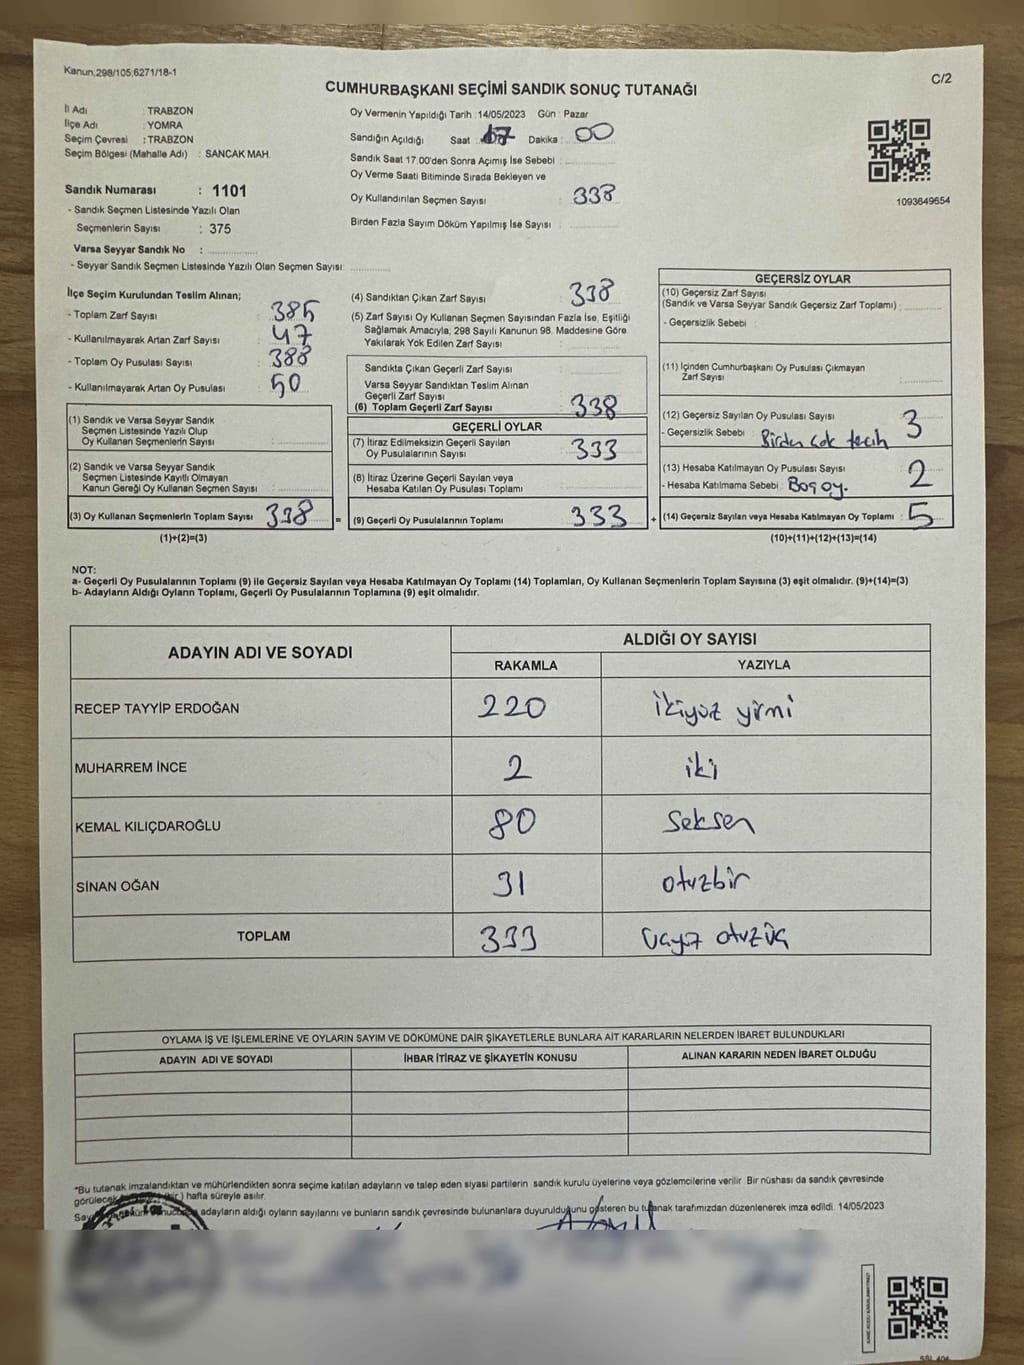 Kanun;298/105;6271/18-1
C/2
CUMHURBAŞKANI SEÇİMİ SANDIK SONUÇ TUTANAĞI
İl Adı : TRABZON
İlçe Adı : YOMRA
Seçim Çevresi : TRABZON
Seçim Bölgesi (Mahalle Adı) : SANCAK MAH.
Oy Vermenin Yapıldığı Tarih : 14/05/2023 Gün : Pazar
Sandığın Açıldığı Saat : 17 Dakika : 00
Sandık Saat 17:00'den Sonra Açımış İse Sebebi :
Oy Verme Saati Bitiminde Sırada Bekleyen ve
Oy Kullandırılan Seçmen Sayısı : 338
Birden Fazla Sayım Döküm Yapılmış İse Sayısı :
1093649654
Sandık Numarası : 1101
- Sandık Seçmen Listesinde Yazılı Olan
Seçmenlerin Sayısı : 375
Varsa Seyyar Sandık No :
- Seyyar Sandık Seçmen Listesinde Yazılı Olan Seçmen Sayısı:
İlçe Seçim Kurulundan Teslim Alınan;
- Toplam Zarf Sayısı : 385
- Kullanılmayarak Artan Zarf Sayısı : 47
- Toplam Oy Pusulası Sayısı : 388
- Kullanılmayarak Artan Oy Pusulası : 50
(1) Sandık ve Varsa Seyyar Sandık
Seçmen Listesinde Yazılı Olup
Oy Kullanan Seçmenlerin Sayısı :
(2) Sandık ve Varsa Seyyar Sandık
Seçmen Listesinde Kayıtlı Olmayan
Kanun Gereği Oy Kullanan Seçmen Sayısı :
(3) Oy Kullanan Seçmenlerin Toplam Sayısı : 338
(1)+(2)=(3)
(4) Sandıktan Çıkan Zarf Sayısı : 338
(5) Zarf Sayısı Oy Kullanan Seçmen Sayısından Fazla İse, Eşitliği
Sağlamak Amacıyla; 298 Sayılı Kanunun 98. Maddesine Göre
Yakılarak Yok Edilen Zarf Sayısı :
Sandıkta Çıkan Geçerli Zarf Sayısı :
Varsa Seyyar Sandıktan Teslim Alınan
Geçerli Zarf Sayısı :
(6) Toplam Geçerli Zarf Sayısı : 338
GEÇERLİ OYLAR
(7) İtiraz Edilmeksizin Geçerli Sayılan
Oy Pusulalarının Sayısı : 333
(8) İtiraz Üzerine Geçerli Sayılan veya
Hesaba Katılan Oy Pusulası Toplamı :
= (9) Geçerli Oy Pusulalarının Toplamı : 333 +
GEÇERSİZ OYLAR
(10) Geçersiz Zarf Sayısı
(Sandık ve Varsa Seyyar Sandık Geçersiz Zarf Toplamı) :
- Geçersizlik Sebebi :
(11) İçinden Cumhurbaşkanı Oy Pusulası Çıkmayan
Zarf Sayısı :
(12) Geçersiz Sayılan Oy Pusulası Sayısı : 3
- Geçersizlik Sebebi : Birden çok tecih
(13) Hesaba Katılmayan Oy Pusulası Sayısı : 2
- Hesaba Katılmama Sebebi : Boş oy.
(14) Geçersiz Sayılan veya Hesaba Katılmayan Oy Toplamı : 5
(10)+(11)+(12)+(13)=(14)
NOT:
a- Geçerli Oy Pusulalarının Toplamı (9) ile Geçersiz Sayılan veya Hesaba Katılmayan Oy Toplamı (14) Toplamları, Oy Kullanan Seçmenlerin Toplam Sayısına (3) eşit olmalıdır. (9)+(14)=(3)
b- Adayların Aldığı Oyların Toplamı, Geçerli Oy Pusulalarının Toplamına (9) eşit olmalıdır.
ADAYIN ADI VE SOYADI
ALDIĞI OY SAYISI
RAKAMLA YAZIYLA
RECEP TAYYİP ERDOĞAN 220 ikiyüz yirmi
MUHARREM İNCE 2 iki
KEMAL KILIÇDAROĞLU 80 seksen
SİNAN OĞAN 31 otuzbir
TOPLAM 333 üçyüz otuzüç
OYLAMA İŞ VE İŞLEMLERİNE VE OYLARIN SAYIM VE DÖKÜMÜNE DAİR ŞİKAYETLERLE BUNLARA AİT KARARLARIN NELERDEN İBARET BULUNDUKLARI
ADAYIN ADI VE SOYADI İHBAR İTİRAZ VE ŞİKAYETİN KONUSU ALINAN KARARIN NEDEN İBARET OLDUĞU
*Bu tutanak imzalandıktan ve mühürlendikten sonra seçime katılan adayların ve talep eden siyasi partilerin sandık kurulu üyelerine veya gözlemcilerine verilir. Bir nüshası da sandık çevresinde
görülecek hafta süreyle asılır.
adayların aldığı oyların sayılarını ve bunların sandık çevresinde bulunanlara duyurulduğunu gösteren bu tutanak tarafımızdan düzenlenerek imza edildi. 14/05/2023